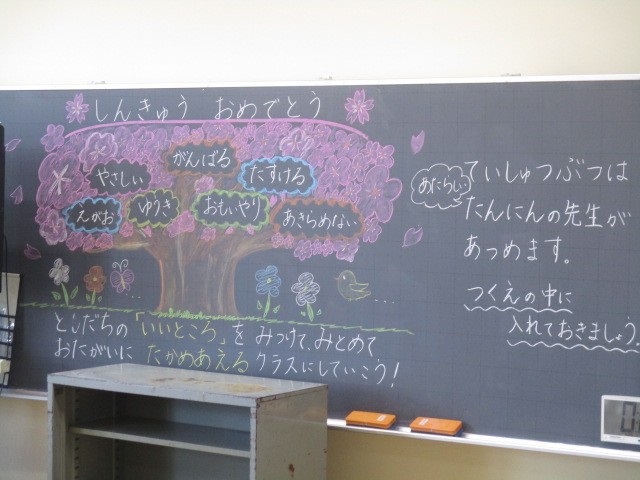 しんきゅう おめでとう
がんばる
やさしい
たすける
えがお
ゆうき
おもいやり
あきらめない
ともだちの「いいところ」を みつけて、みとめて
おたがいに たかめあえる クラスにしていこう！
あたらしい
ていしゅつぶつは
たんにんの先生が
あつめます。
つくえの中に
入れておきましょう。